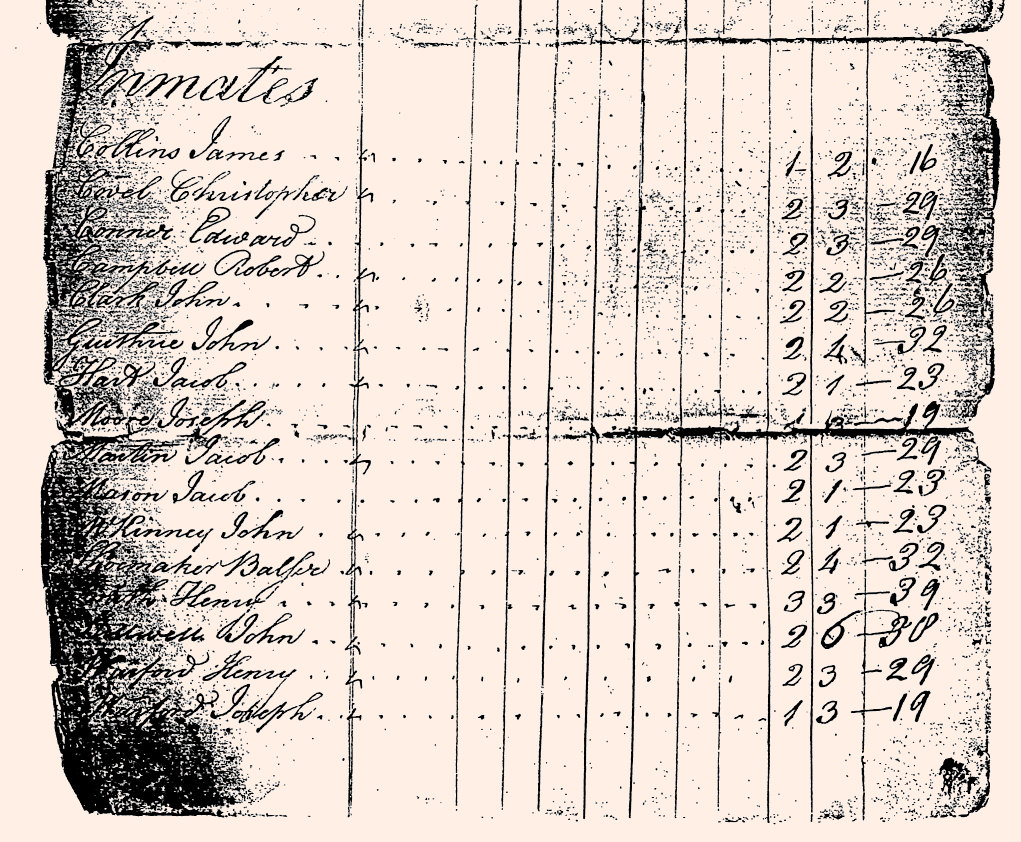 Inmates
Collins James 1 2 16
Covel Christopher 2 3 29
Connor Edward 2 3 — 29
Campbell Robert 2 2 — 26
Clark John 2 2 — 26
Guthrie John 2 4 — 32
Hart Jacob 2 1 — 23
Moore Joseph 1 3 — 19
Martin Jacob 2 3 — 29
Mason Jacob 2 1 — 23
McKinney John 2 1 — 23
Shoemaker Balser 2 4 — 32
Smith Henry 3 3 — 39
John 2 6 — 38
Warford Henry 2 3 — 29
Warford Joseph 1 3 — 19